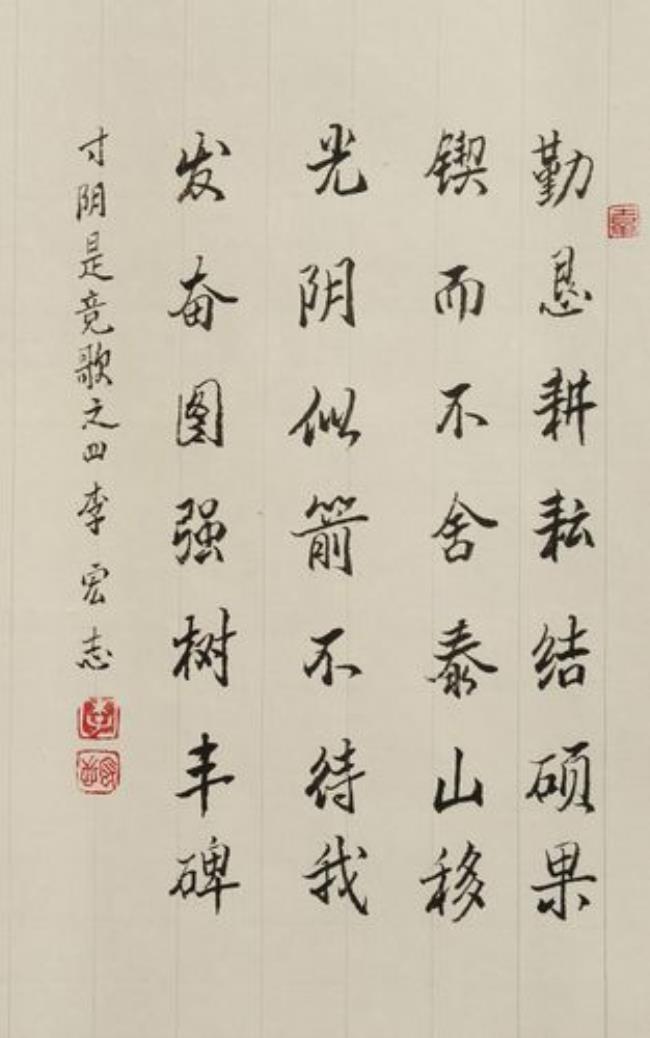 勤恳耕耘结硕果
锲而不舍泰山移
光阴似箭不待我
发奋图强树丰碑
寸阴是竟歌之四李宏志